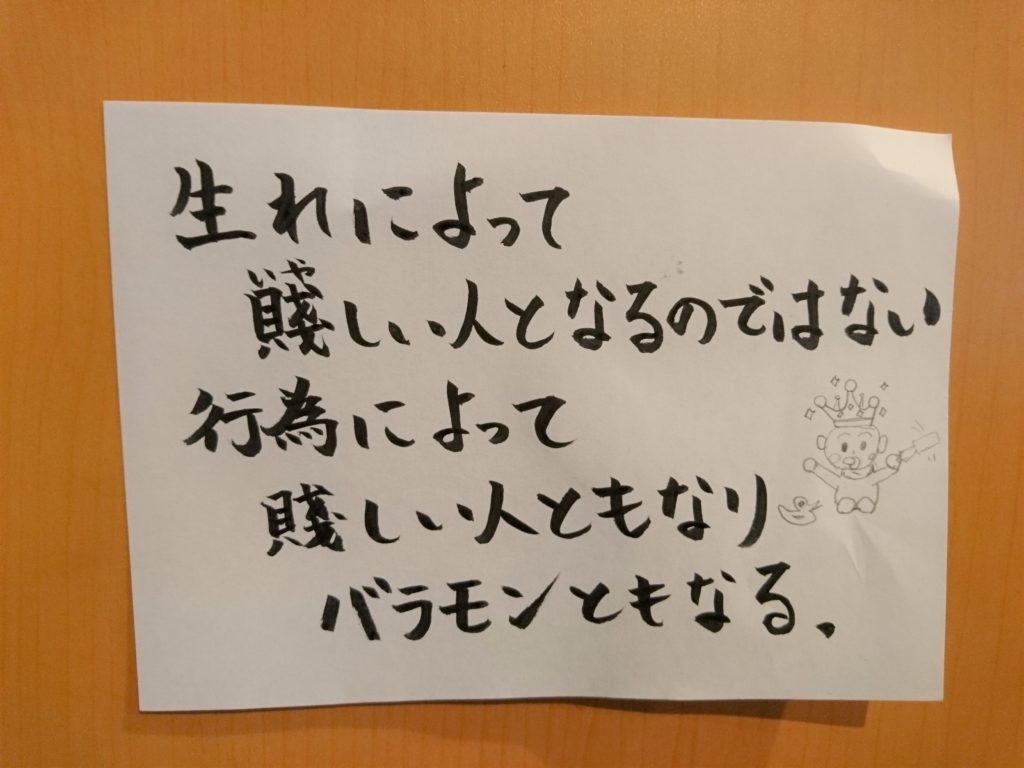 生れによって
賤しい人となるのではない
行為によって
賤しい人ともなり
バラモンともなる、